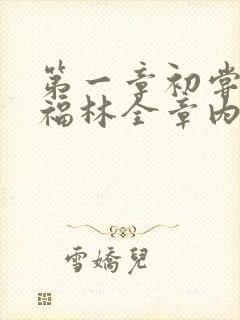 第一章初嘗
福林全章内
雪嬌兒